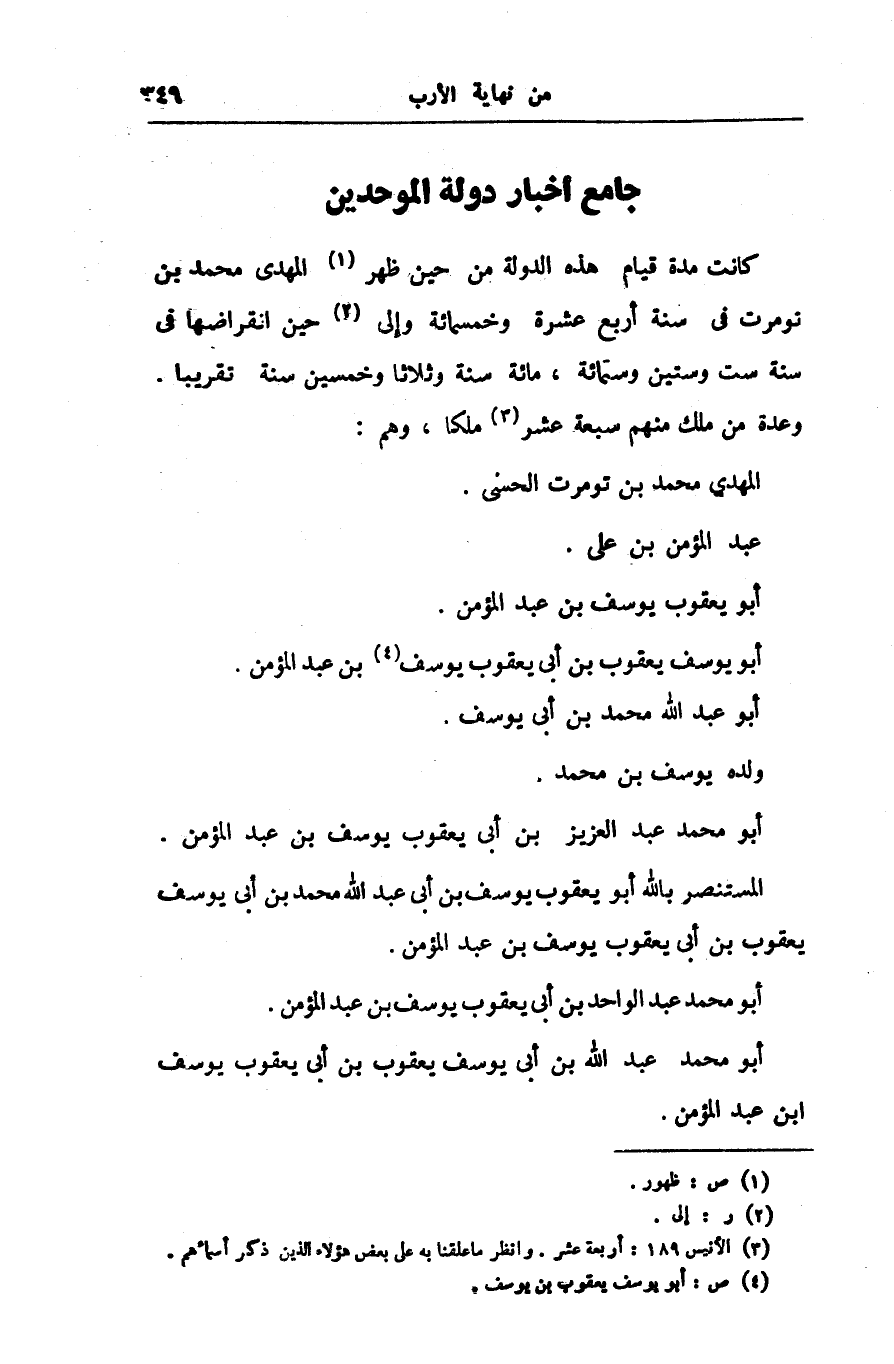 من نهاية الأرب ٣٤٩
جامع أخبار دولة الموحدين
كانت مدة قيام هذه الدولة من حين ظهر (١) المهدى محمد بن
تومرت فى سنة أربع عشرة وخمسمائة وإلى (٢) حين انقراضها فى
سنة ست وستين وستمائة ، مائة سنة وثلاثا وخمسين سنة تقريبا .
وعدة من ملك منهم سبعة عشر (٣) ملكا ، وهم :
المهدي محمد بن تومرت الحسنى .
عبد المؤمن بن على .
أبو يعقوب يوسف بن عبد المؤمن .
أبو يوسف يعقوب بن أبى يعقوب يوسف (٤) بن عبد المؤمن .
أبو عبد الله محمد بن أبى يوسف .
ولده يوسف بن محمد .
أبو محمد عبد العزيز بن أبى يعقوب يوسف بن عبد المؤمن .
المستنصر بالله أبو يعقوب يوسف بن أبى عبد الله محمد بن أبى يوسف
يعقوب بن أبى يعقوب يوسف بن عبد المؤمن .
أبو محمد عبد الواحد بن أبى يعقوب يوسف بن عبد المؤمن .
أبو محمد عبد الله بن أبى يوسف يعقوب بن أبى يعقوب يوسف
ابن عبد المؤمن .
(١) ص : ظهور .
(٢) ر : إلى .
(٣) الأنيس ١٨٩ : أربعة عشر . وانظر ماعلقنا به على بعض هؤلاء الذين ذكر أسمائهم .
(٤) ص : أبو يوسف يعقوب بن يوسف .